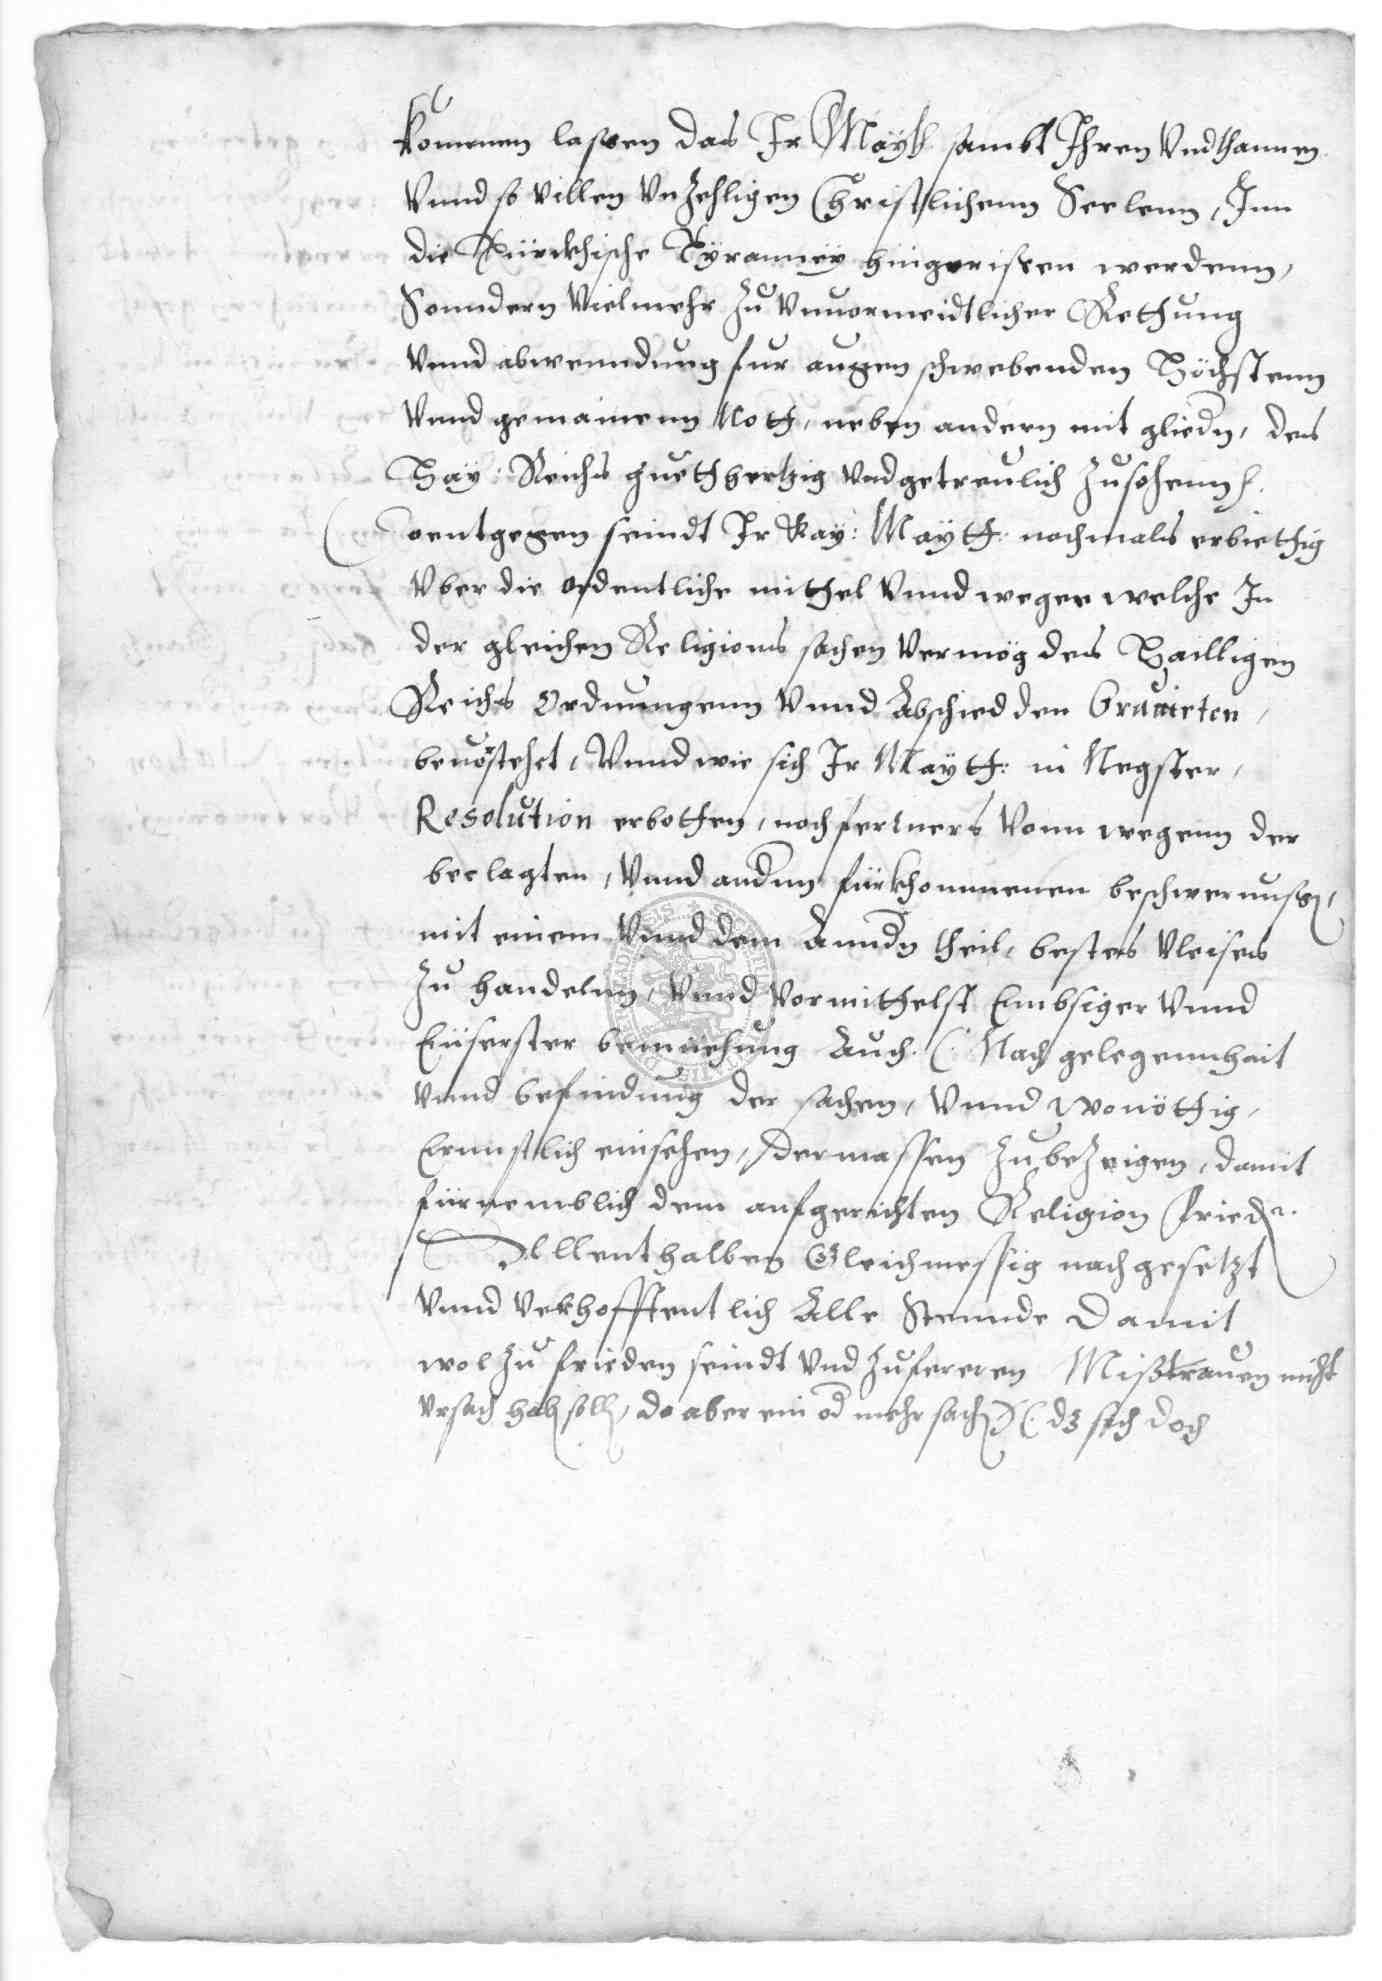 kommen lassen das Ir Maytt. sambt Ihren Vndthannen
Vnnd so villen Vnzehligen Christlichenn Seelenn, Inn
die Türckhische Tyranney hingerissen werdenn,
Sonndern Vielmehr zu Vnuormeidtlicher Rethung
Vnnd abwenndung fur augen schwebenden Höchstenn
Vnnd gemainenn Noth, neben andern mit gliedn, des
Hay: Reichs guethertzig Vnd getreulich zusehenn.
entgegen seindt Ir Kay: Maytt: nochmals erbiethig
Vber die ordentliche mithel Vnnd wegee welche In
der gleichen Religions sachen Vermög des Hailligen
Reichs Ordnungenn Vnnd Abschied den Grauirten,
beuorstehet, Vnnd wie sich Ir Maytt: in Negster,
Resolution erbothen, noch ferners Vonn wegenn der
beclagten, Vnnd andern fürkhommenen beschwernussen,
mit einem Vnnd dem Anndn theil, bestes Vleises
zu handelnn, Vnnd Vormithelst Embsiger Vnnd
Eüserster bemüehung Auch. (: Nach gelegennhait
Vnnd befindung der sachen, Vnnd Wonöthig,
Ernnstlich einsehen, dermassen zubezeigen, damit
fürnemblich dem aufgerichten Religion frieden.
Allenthalben Gleichmessig nachgesetzt
Vnnd Verhoffentlich Alle Stennde Damit
wol zu frieden seindt Vnd zu fereren Mißtrauen nicht
Vrsach haben sollen, do aber ein od mehr sachen (: dz sich doch